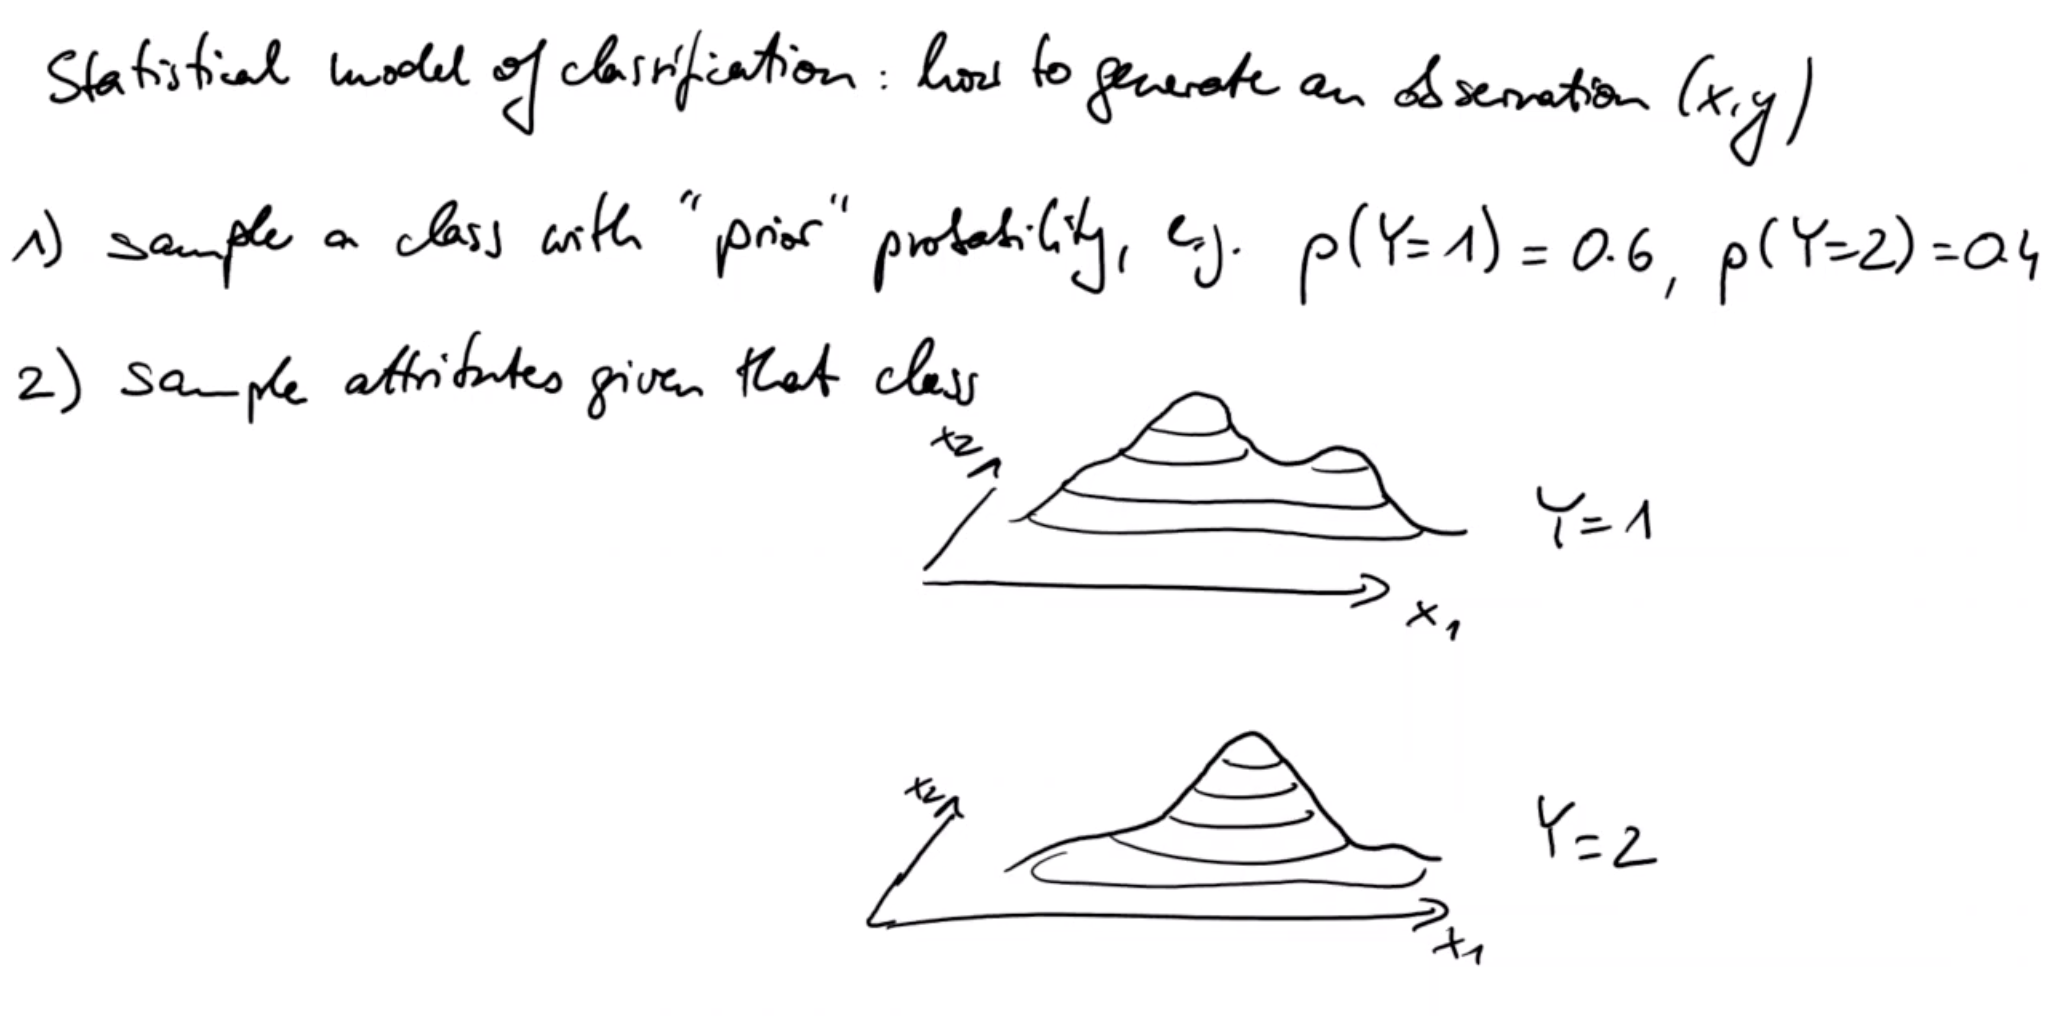 Statistical model of classification: how to generate an observation (x,y)
1) sample a class with "prior" probability, e.g. p(Y=1) = 0.6, p(Y=2) = 0.4
2) sample attributes given that class
x2
Y=1
x1
x2
Y=2
x1